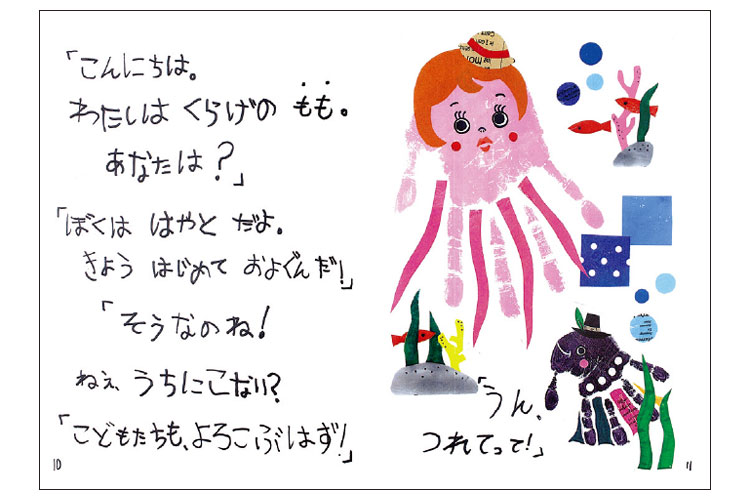 「こんにちは。
わたしは くらげの もも。
あなたは？」
「ぼくは はやと だよ。
きょう はじめて およぐんだ！」
「そうなのね！
ねぇ、うちにこない？
「こどもたちも、よろこぶはず！」
「うん、
つれてって！」
10
11